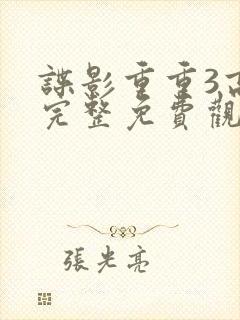 諜影重重3高
完整免費觀
張光亮